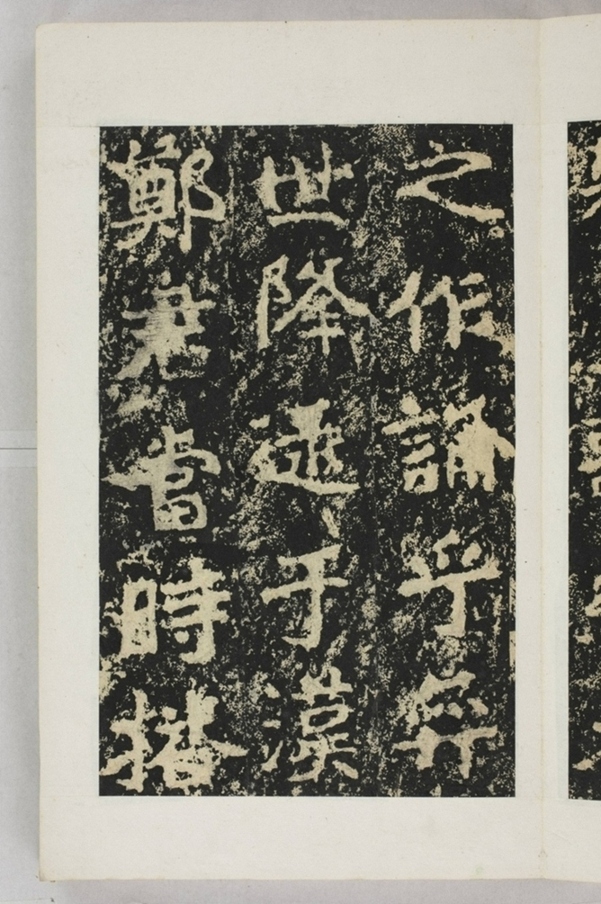 之作誦乎弈
世降逮于漢
鄭君當時播